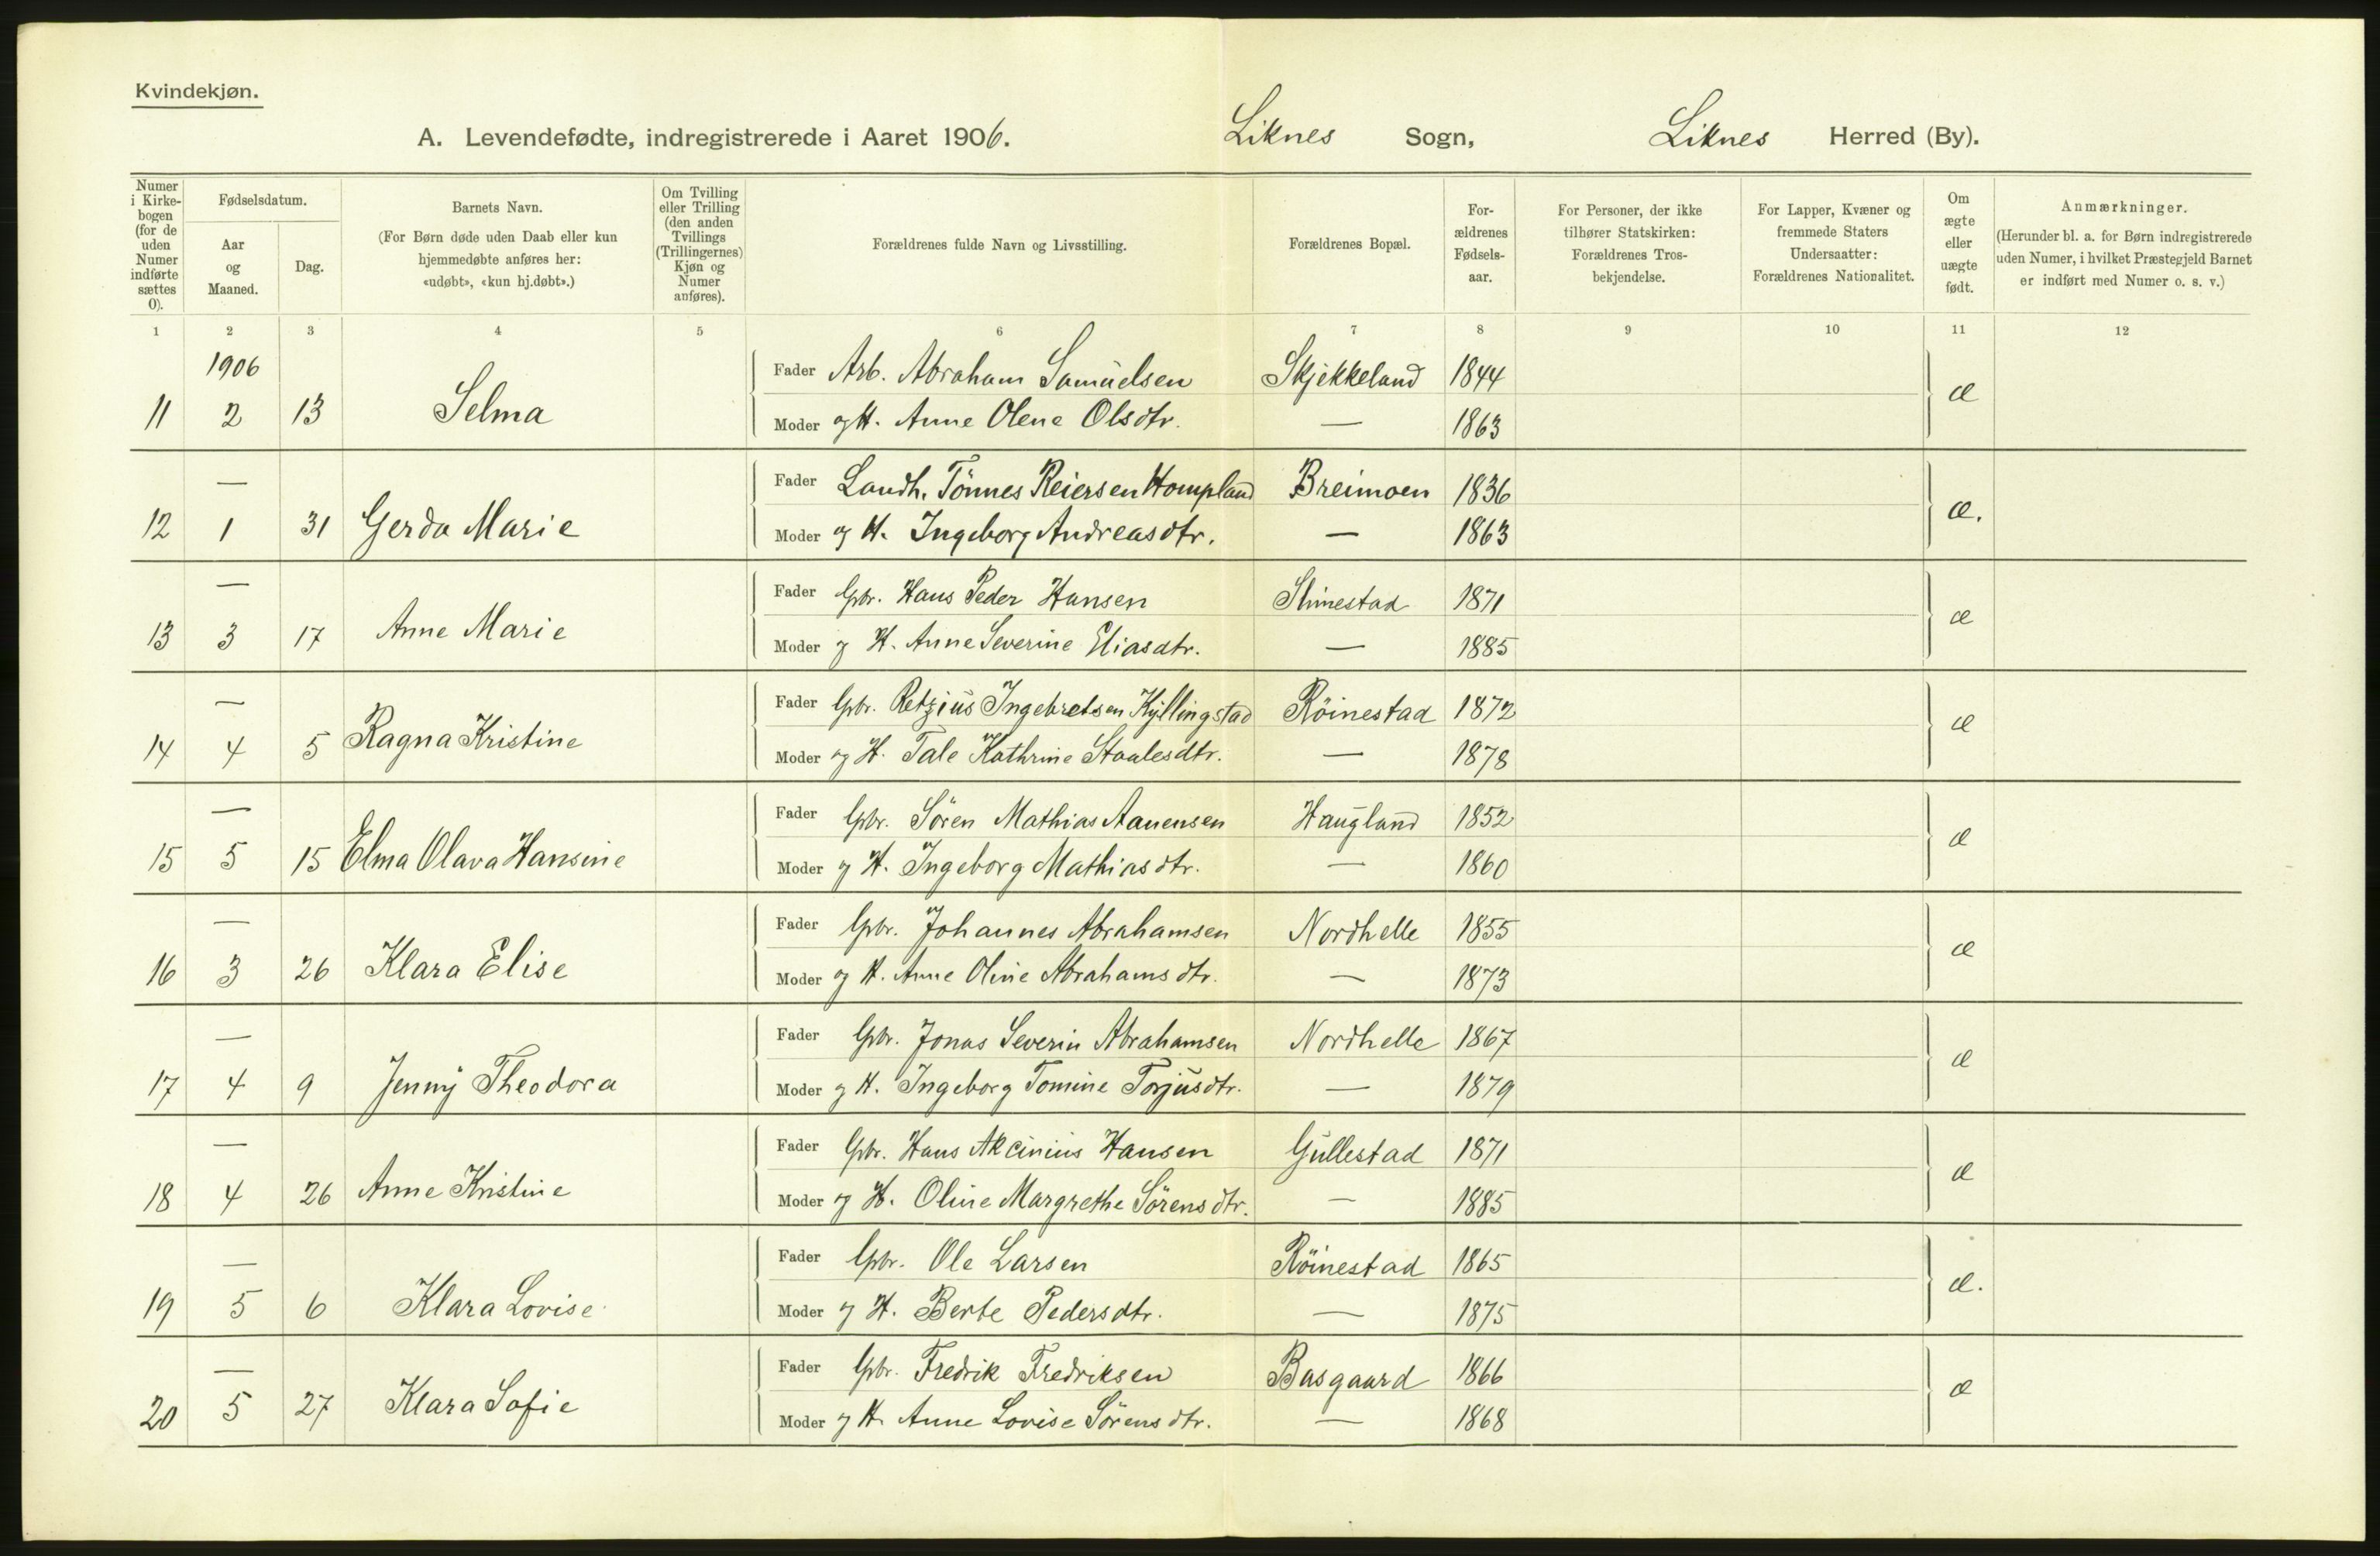 Kvindekjøn.
A. Levendefødte, indregistrerede i Aaret 1906. Liknes Sogn, Liknes Herred (By).
Numer i Kirkebogen (for de uden Numer indførte sættes 0).
Fødselsdatum.
Aar og Maaned.
Dag.
Barnets Navn.
(For Børn døde uden Daab eller kun hjemmedøbte anføres her: «udøbt», «kun hj.døbt».)
Om Tvilling eller Trilling (den anden Tvillings (Trillingernes) Kjøn og Numer anføres).
Forældrenes fulde Navn og Livsstilling.
Forældrenes Bopæl.
For-ældrenes Fødsels-aar.
For Personer, der ikke tilhører Statskirken: Forældrenes Tros-bekjendelse.
For Lapper, Kvæner og fremmede Staters Undersaatter: Forældrenes Nationalitet.
Om ægte eller uægte født.
Anmærkninger.
(Herunder bl. a. for Børn indregistrerede uden Numer, i hvilket Præstegjeld Barnet er indført med Numer o. s. v.)
1 2 3 4 5 6 7 8 9 10 11 12
1906
Fader Arb. Abraham Samuelsen Skjekkeland 1844
11 2 13 Selma æ
Moder og H. Anne Olene Olsdtr. — 1863
— Fader Landh. Tönnes Reiersen Hompland Breimoen 1836
12 1 31 Gerda Marie æ.
Moder og H. Ingeborg Andreasdtr. — 1863
— Fader Gbr. Hans Peder Hansen Slimestad 1871
13 3 17 Anne Marie æ
Moder og H. Anne Severine Eliasdtr. — 1885
— Fader Gbr. Retzius Ingebretsen Kyllingstad Röinestad 1872
14 4 5 Ragna Kristine æ
Moder og H. Tale Kathrine Staalesdtr. — 1878
— Fader Gbr. Sören Mathias Aanensen Haugland 1852
15 5 15 Elma Olava Hansine æ
Moder og H. Ingeborg Mathiasdtr. — 1860
— Fader Gbr. Johannes Abrahamsen Nordhelle 1855
16 3 26 Klara Elise æ
Moder og H. Anne Oline Abrahamsdtr. — 1873
— Fader Gbr. Jonas Severin Abrahamsen Nordhelle 1867
17 4 9 Jenny Theodora æ
Moder og H. Ingeborg Tomine Torjusdtr. — 1879
— Fader Gbr. Hans Akcinius Hansen Gullestad 1871
18 4 26 Anne Kristine æ
Moder og H. Oline Margrethe Sörensdtr. — 1885
— Fader Gbr. Ole Larsen Röinestad 1865
19 5 6 Klara Lovise æ.
Moder og H. Berte Pedersdtr. — 1875
— Fader Gbr. Fredrik Fredriksen Basgaard 1866
20 5 27 Klara Sofie æ
Moder og H. Anne Lovise Sörensdtr. — 1868